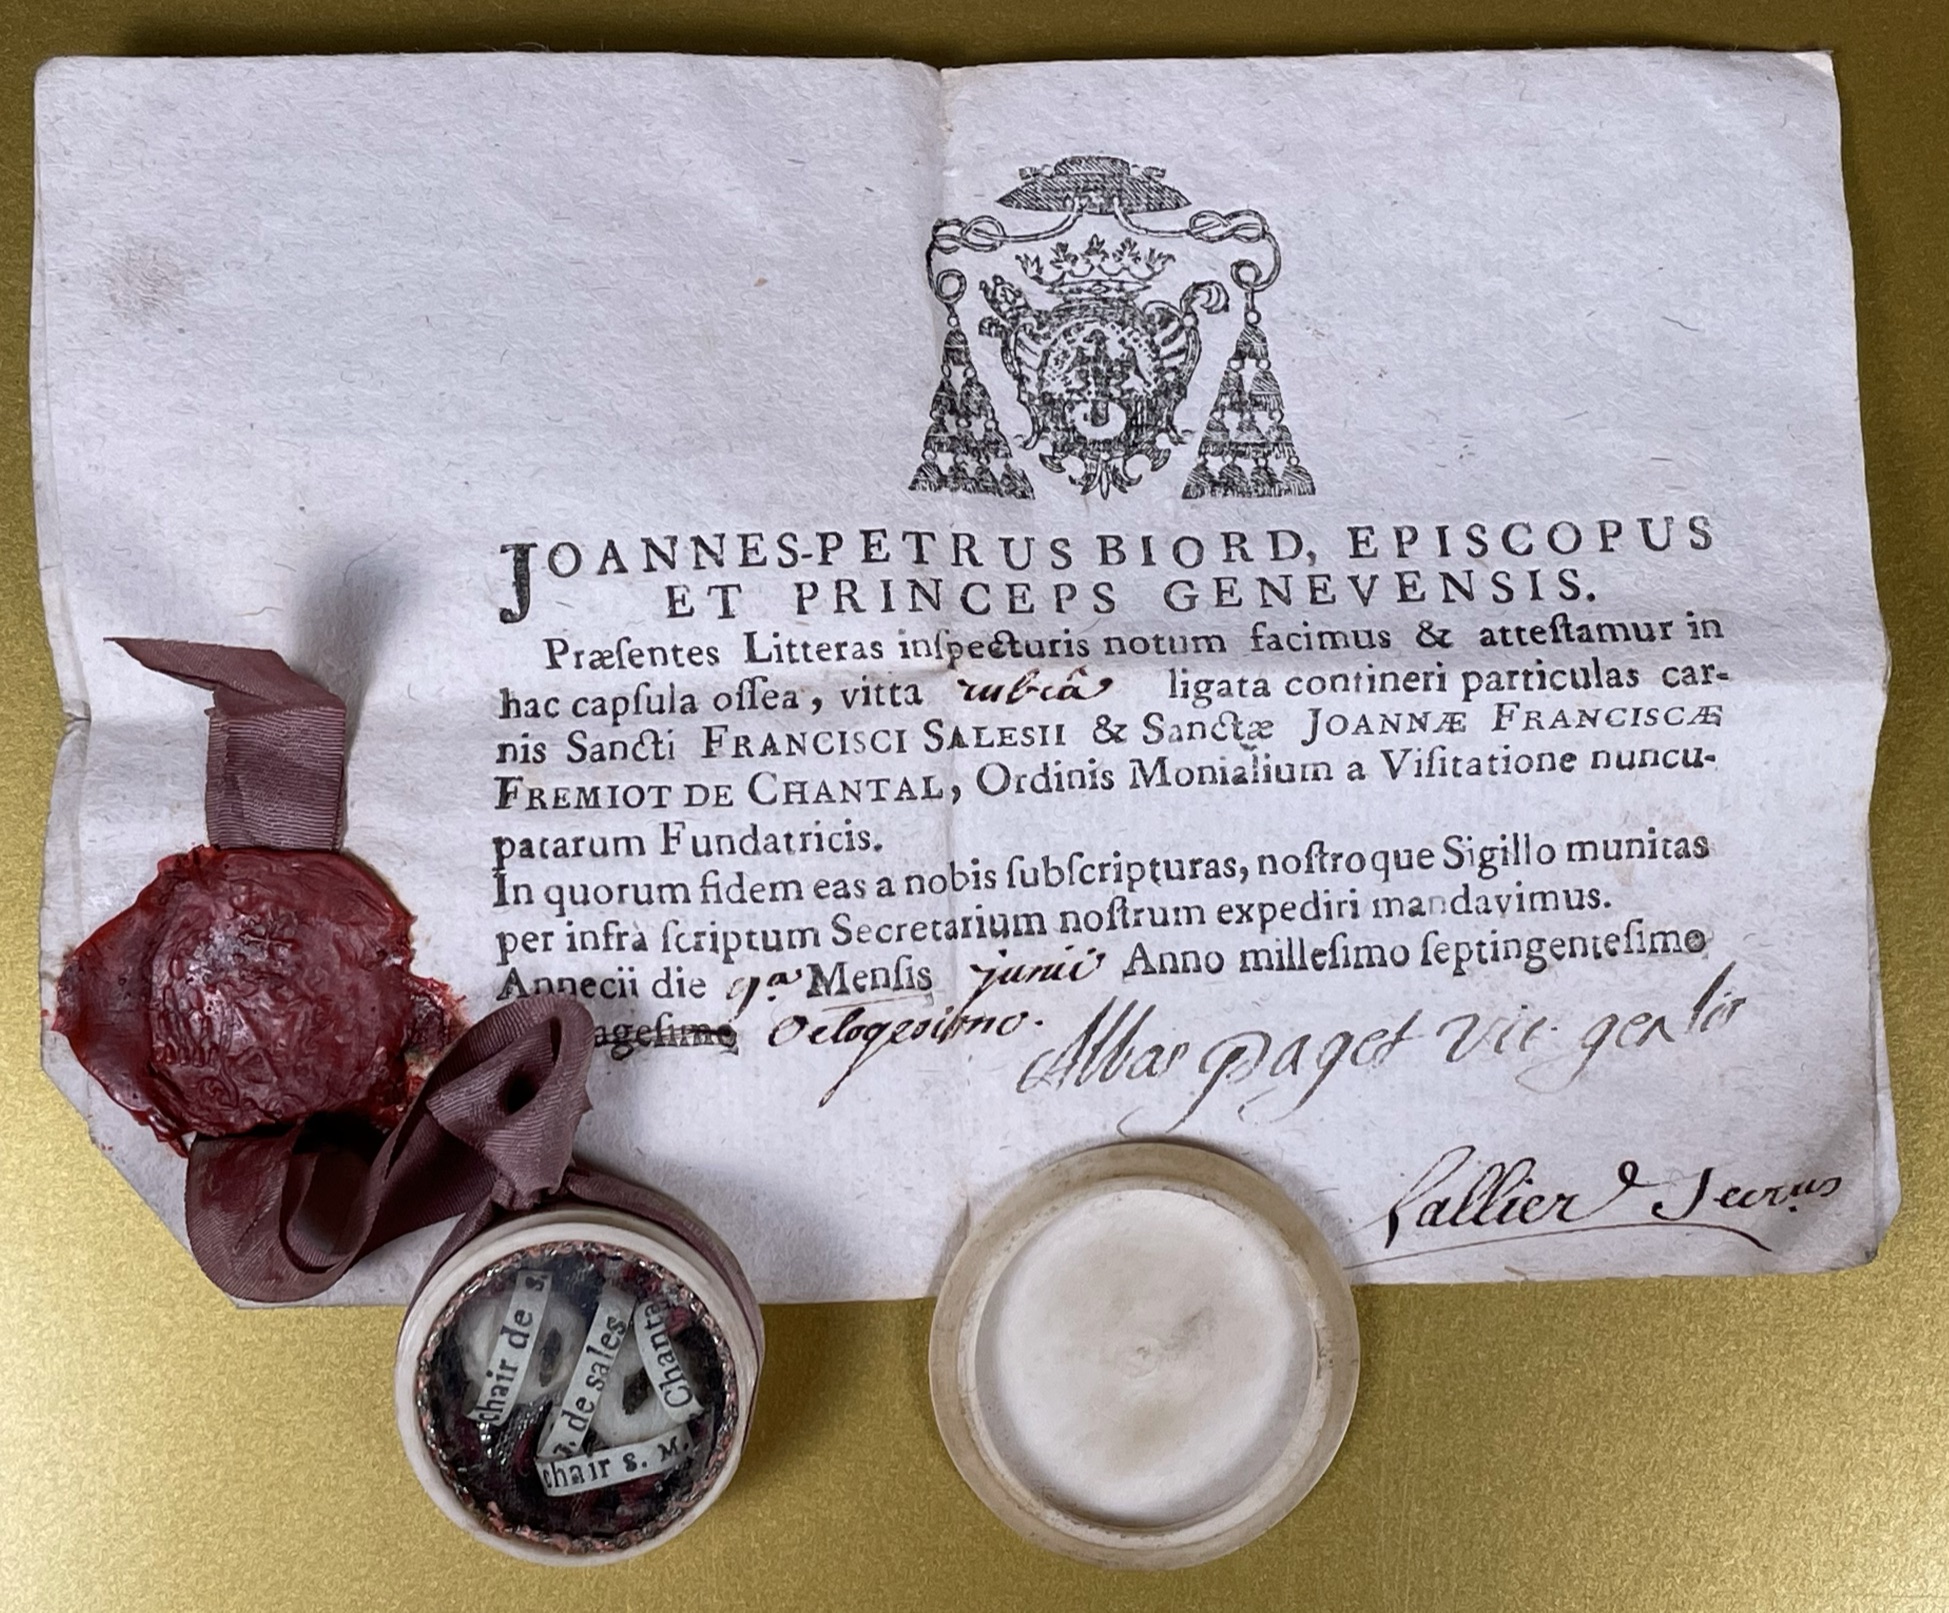 JOANNES-PETRUS BIORD, EPISCOPUS
ET PRINCEPS GENEVENSIS.
Præſentes Litteras inſpecturis notum facimus & atteſtamur in
hac capſula oſſea, vitta rubrâ ligata contineri particulas car-
nis Sancti FRANCISCI SALESII & Sanctæ JOANNÆ FRANCISCÆ
FREMIOT DE CHANTAL, Ordinis Monialium a Viſitatione nuncu-
patarum Fundatricis.
In quorum fidem eas a nobis ſubſcripturas, noſtroque Sigillo munitas
per infrà ſcriptum Secretarium noſtrum expediri mandavimus.
Annecii die 9ª Menſis junii Anno milleſimo ſeptingenteſimo
ageſimo Octogesimo.
Puget vic. genlis
chair de s.
de sales
Chanta
chair s. M.